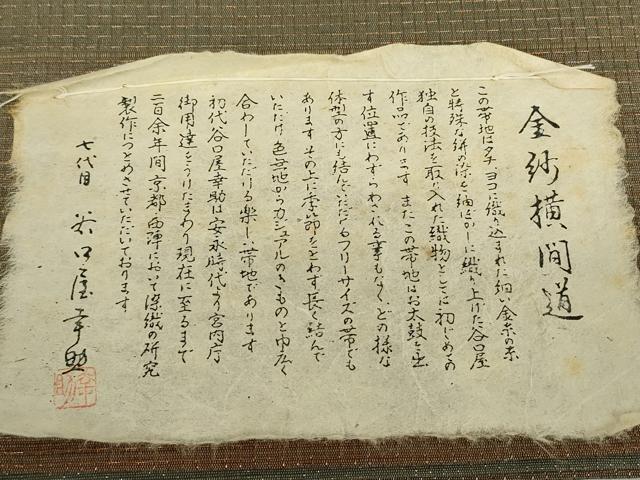 金紗横間道
この帯地はタテヨコに織り込まれた細い金糸の糸
と特殊な絣の染と細やかに織り上げた谷口屋
独自の技法を取り入れた織物としては初じめての
作品であります またこの帯地はお太鼓を出
す位置にわずらわされる事もなく、どの様な
体型の方にも結んでいただけるフリーサイズの帯でも
あります その上に季節をとわず長く結んで
いただけ色無地からカジュアルのきものと巾広く
合わしていただける楽しい帯地であります
初代谷口屋幸助は安永時代より宮内庁
御用達をうけたまわり現在に至るまで
二百余年間京都西陣において染織の研究
製作につとめさせていただいております
七代目 谷口屋幸助